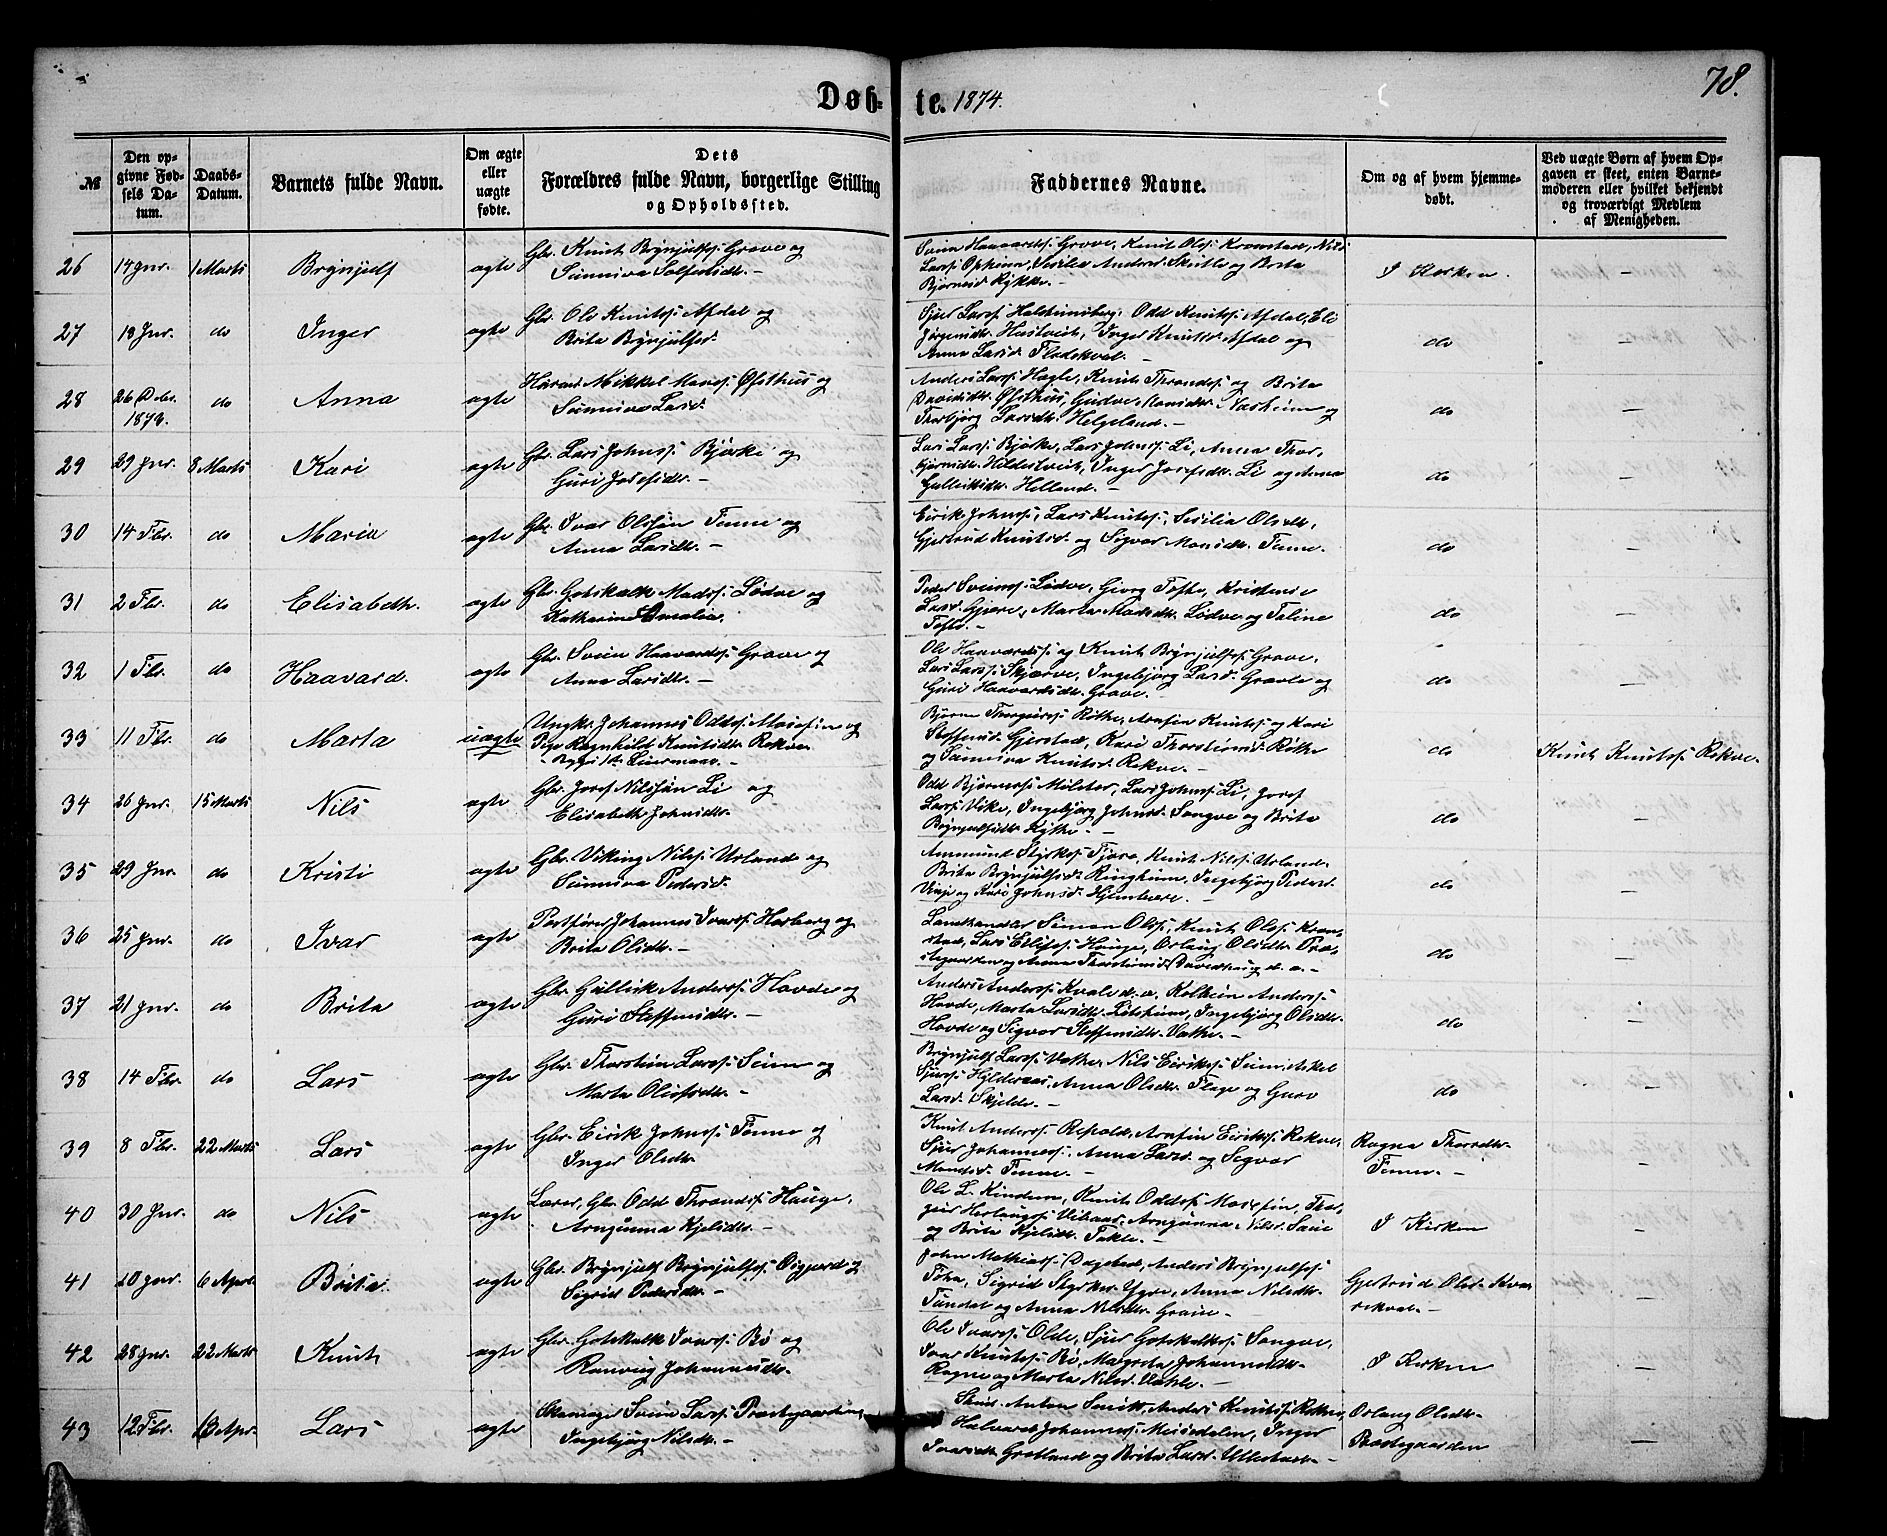 Døb-te. 1874.
78.
№
Den opgivne Fødsels Datum.
Daabs-Datum.
Barnets fulde Navn.
Om ægte eller uægte fødte.
Dets Forældres fulde Navn, borgerlige Stilling og Opholdssted.
Faddernes Navne.
Om og af hvem hjemmedøbt.
Ved uægte Børn af hvem Opgaven er skeet, enten Barnemoderen eller hvilket bekjendt og troværdigt Medlem af Menigheden.
26 14 Jnr. 1 Marts Brynjulf ægte Gbr. Knut Brynjulfs. Grove og
Sunniva
Svein Haavards. Grove, Knut Ols. Kronstad, Nils
Lars. Opheim, Sesilia Anders. Skutle og Brita
Bjørnsd. Rykke. —
I Kirken —
27 19 Jnr. do Inger ægte Gbr. Ole Knuts. Afdal og
Brita Brynjulfsd.
Sjur Lars. Odd Knuts. Afdal, Eli
Inger Knutsd. Afdal og
Anna Larsd. Flatekval. —
do —
28 26 Dcbr. 1873. do Anna ægte Mikkel Mons. Øfsthus og
Sunniva Larsd.
Anders Lars. Hægle, Knut Thronds. og Brita
Davidsdr. Øfsthus, Gudve Monsdr. Næsheim og
Thorbjørg Larsdr. Helgeland. —
do —
29 29 Jnr. 8 Marts Kari ægte Gbr. Lars Johns. Bjørke og
Guri Josefsdr. —
Lars Lars. Bjørke, Lars Johns. Li, Anna Thor-
bjørnsdr. Hildestveit, Inger Josefsdr. Li og Anna
Gulleiksdr. Helland. —
do —
30 14 Fbr. do Maria ægte Gbr. Ivar Olsson Finne og
Anna Larsdr. —
Eirik Johns., Lars Knuts., Sesilia Olsdr.,
Gjertrud Knutsd. og Sigvor Monsdr. Finne.
do —
31 2 Fbr. do Elisabeth. ægte Gbr. Gotskalk Mads. Lødve og
Katharina Amalia.
Peder Sveins. Lødve, Georg Tofte, Kristense
Larsd. Gjære, Marta Madsdr. Lødve og Taline
Tofte. —
do —
32 1 Fbr. do Haavard. ægte Gbr. Svein Haavards. Grove og
Anna Larsdr. —
Ole Haavards. og Knut Brynjulfs. Grove,
Lars Lars. Skjerve, Ingebjørg Larsd. Græe og
Guri Haavardsdr. Grove. —
do —
33 11 Fbr. do Marta uægte Ungkr. Johannes Odds. Mosefin og
Pige Ragnhild Knutsdr. Rekve
Begges 1ste Leiermaal. —
Bjørne Thorgeirs. Røthe, Arnfin Knuts. og Kari
Steffensd. Gjerstad, Kari Thorsteinsd. Røthe
og Sunniva Knutsd. Rekve. —
do
Knut Knuts. Rekve.
34 26 Jnr. 15 Marts Nils ægte Gbr. Josef Nilsson Li og
Elisabeth Johnsdr.
Odd Bjørnes. Mølster, Lars Johns. Li, Josef
Lars. Vike, Ingebjørg Johnsd. Songve og Brita
Brynjulfsdr. Kytte. —
do —
35 29 Jnr. do Kristi ægte Gbr. Viking Nils. Urland og
Sunniva Pedersd.
Ammund Styrks. Tjore, Knut Nils. Urland.
Brita Brynjulfsd. Ringheim, Ingebjørg Pedersd.
Vinje og Kari Johnsd. —
do —
36 25 Jnr. do Ivar ægte Johannes Ivars. Horberg og
Brita Olsdr. —
Landhandler Simon Ols., Knut Ols. Kron-
stad, Lars Hauge, Orlaug Olsdr. Præ-
stegaarden og Anna Thorsteinsd. Davidhaug d. æ. —
do —
37 21 Jnr. do Brita ægte Gbr. Gullik Anders. Hovde og
Guri Steffensdr. —
Anders Anders. Kvale d. æ. Kolbein Anders.
Hovde, Marta Larsdr. Ingebjørg Olsdr.
Hovde og Sigvor Steffensdr. Væthe. —
do —
38 14 Fbr. do Lars ægte Gbr. Thorstein Lars. Seim og
Marta Olsdr. —
Brynjulf Lars. Væthe, Nils Eiriks. Seim, Askel
Sjurs. Hylderaas, Anna Olsdr. Flage og Guro
Larsd. Skjelde. —
do —
39 8 Fbr. 22 Marts Lars ægte Gbr. Eirik Johns. Finne og
Inger Olsdr.
Knut Anders. Repald, Arnfin Eiriks. Rekve,
Sjur Johannes. Anna Larsd. og Segvor
Monsd. Finne. —
Ragna Thorsdtr.
Finne. —
40 30 Jnr. do Nils ægte Lærer, Gbr. Odd Thronds. Hauge,
Arngunna Kjelsdr. —
Ole L. Kindem, Knut Odds. Mosefin, Thor-
geir Herlaugs. Arngunna Nilsd. Saue
og Brita Kjelsdr. Takle. —
I Kirken —
41 10 Jnr. 6 Apr. Brita ægte Gbr. Brynjulf Brynjulfs. og
Sigrid Pedersdr. —
John Mathias. Dagestad, Anders Brynjulfs.
Sigrid Styrksd. Ygre, Anna Nilsdr.
Tundal og Anna Nilsdr. Graue. —
Gjertrud Olsd. Kvar-
rekval. —
42 28 Jnr. 22 Marts Knut ægte Gbr. Gotskalk Ivars. Bø og
Ranveig Johannesdr.
Ole Ivars. Olde, Sjur Gotskalks. Songve,
Ivar Knuts. Bø, Margreta Johannesdr.
Rogne og Marta Nilsd. Væthe. —
I Kirken —
43 12 Fbr. 13 Apr. Lars ægte Skomager Svein Lars. Præstegaarden,
Ingebjørg Nilsdr. —
Anton Smitt, Anders Knuts. Røthe,
Halvard Johannes. Mussedalen, Inger
Ivarsdr. Grotland og Brita Larsd. Ullestad. —
Orlaug Olsdr.
Præstegaarden —